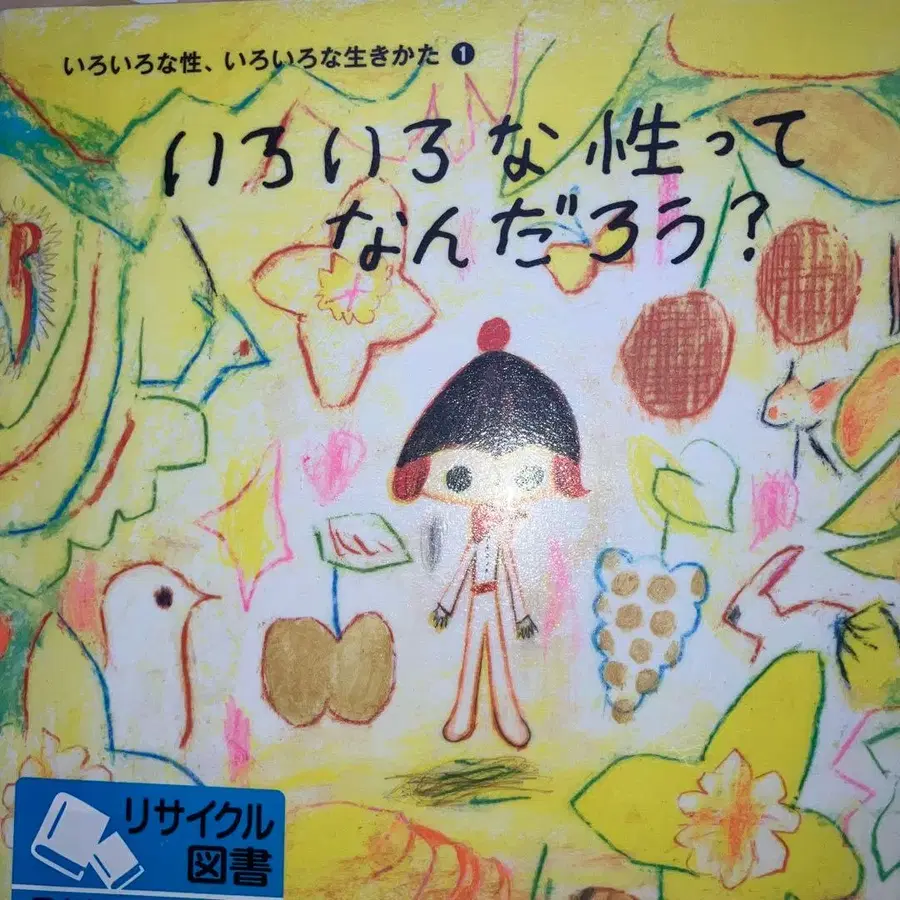 いろいろな性、いろいろな生きかた ❶
いろいろな性って
なんだろう?
リサイクル
図書